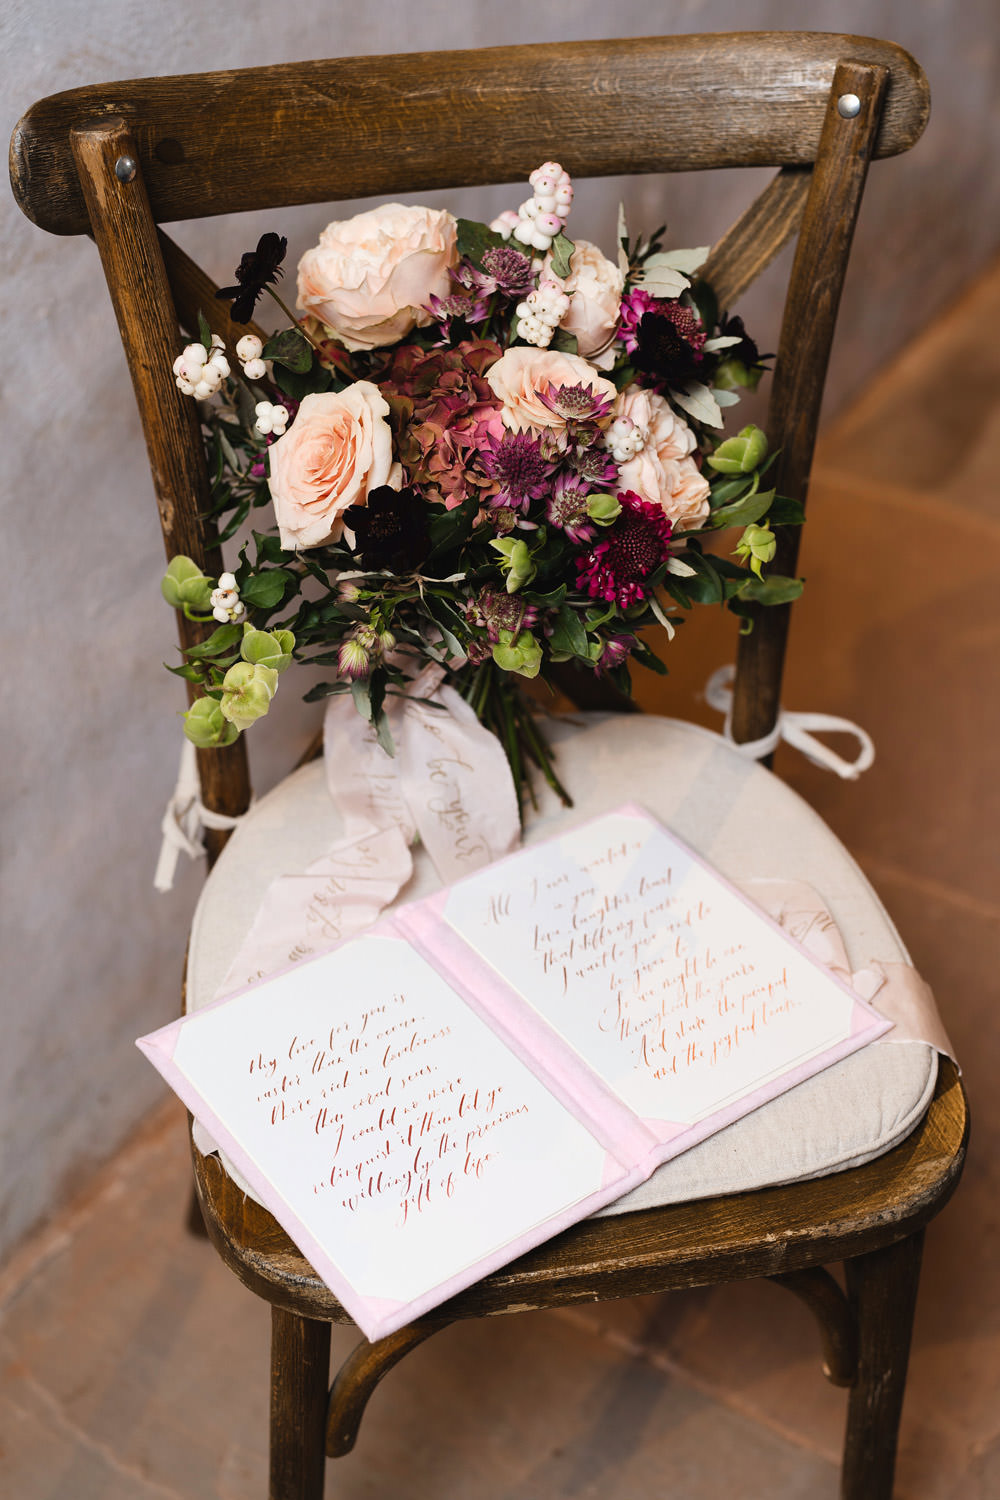 My love for you is
vaster than the ocean.
More rich in loveliness
than coral seas.
I could no more
relinquish it than let go
willingly the precious
gift of life.
All I ever wanted is
in you
Love, laughter, trust
that stilling fears,
I want to give and to
be given to
So we might be one
throughout the years
And share the painful
and the joyful tears.
to be your